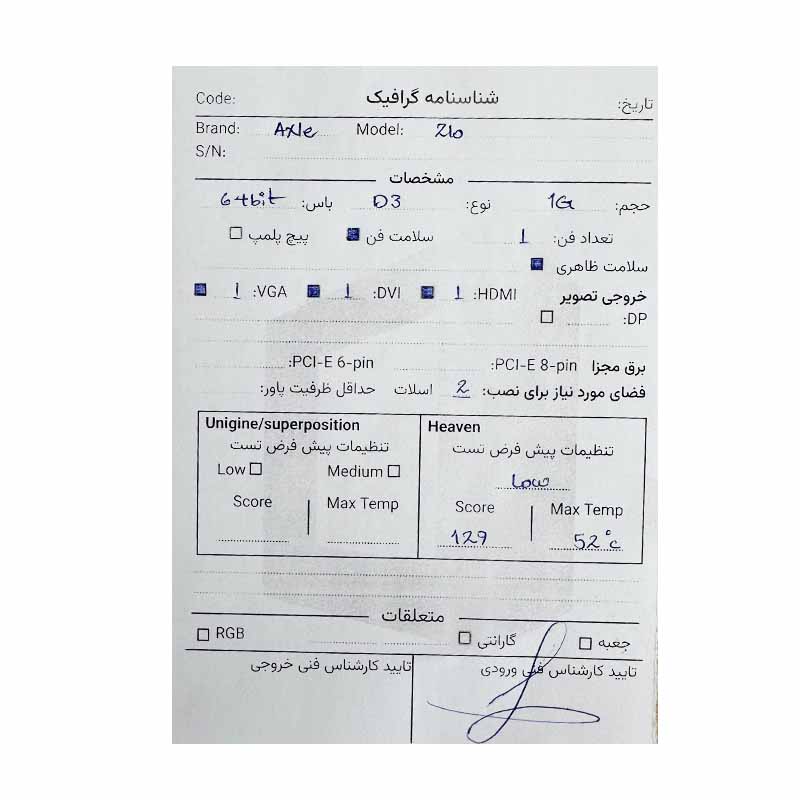 تاریخ: شناسنامه گرافیک Code:
Brand: Axle Model: 210
S/N:
مشخصات
حجم: 1G نوع: D3 باس: 64bit
تعداد فن: 1 سلامت فن پیچ پلمپ
سلامت ظاهری
خروجی تصویر HDMI: 1 DVI: 1 VGA: 1
DP:
برق مجزا PCI-E 8-pin: PCI-E 6-pin:
فضای مورد نیاز برای نصب: 2 اسلات حداقل ظرفیت پاور:
Unigine/superposition
تنظیمات پیش فرض تست
Low Medium
Score Max Temp
Heaven
تنظیمات پیش فرض تست
Low
Score Max Temp
129 52°c
متعلقات
جعبه گارانتی RGB
تایید کارشناس فنی ورودی تایید کارشناس فنی خروجی